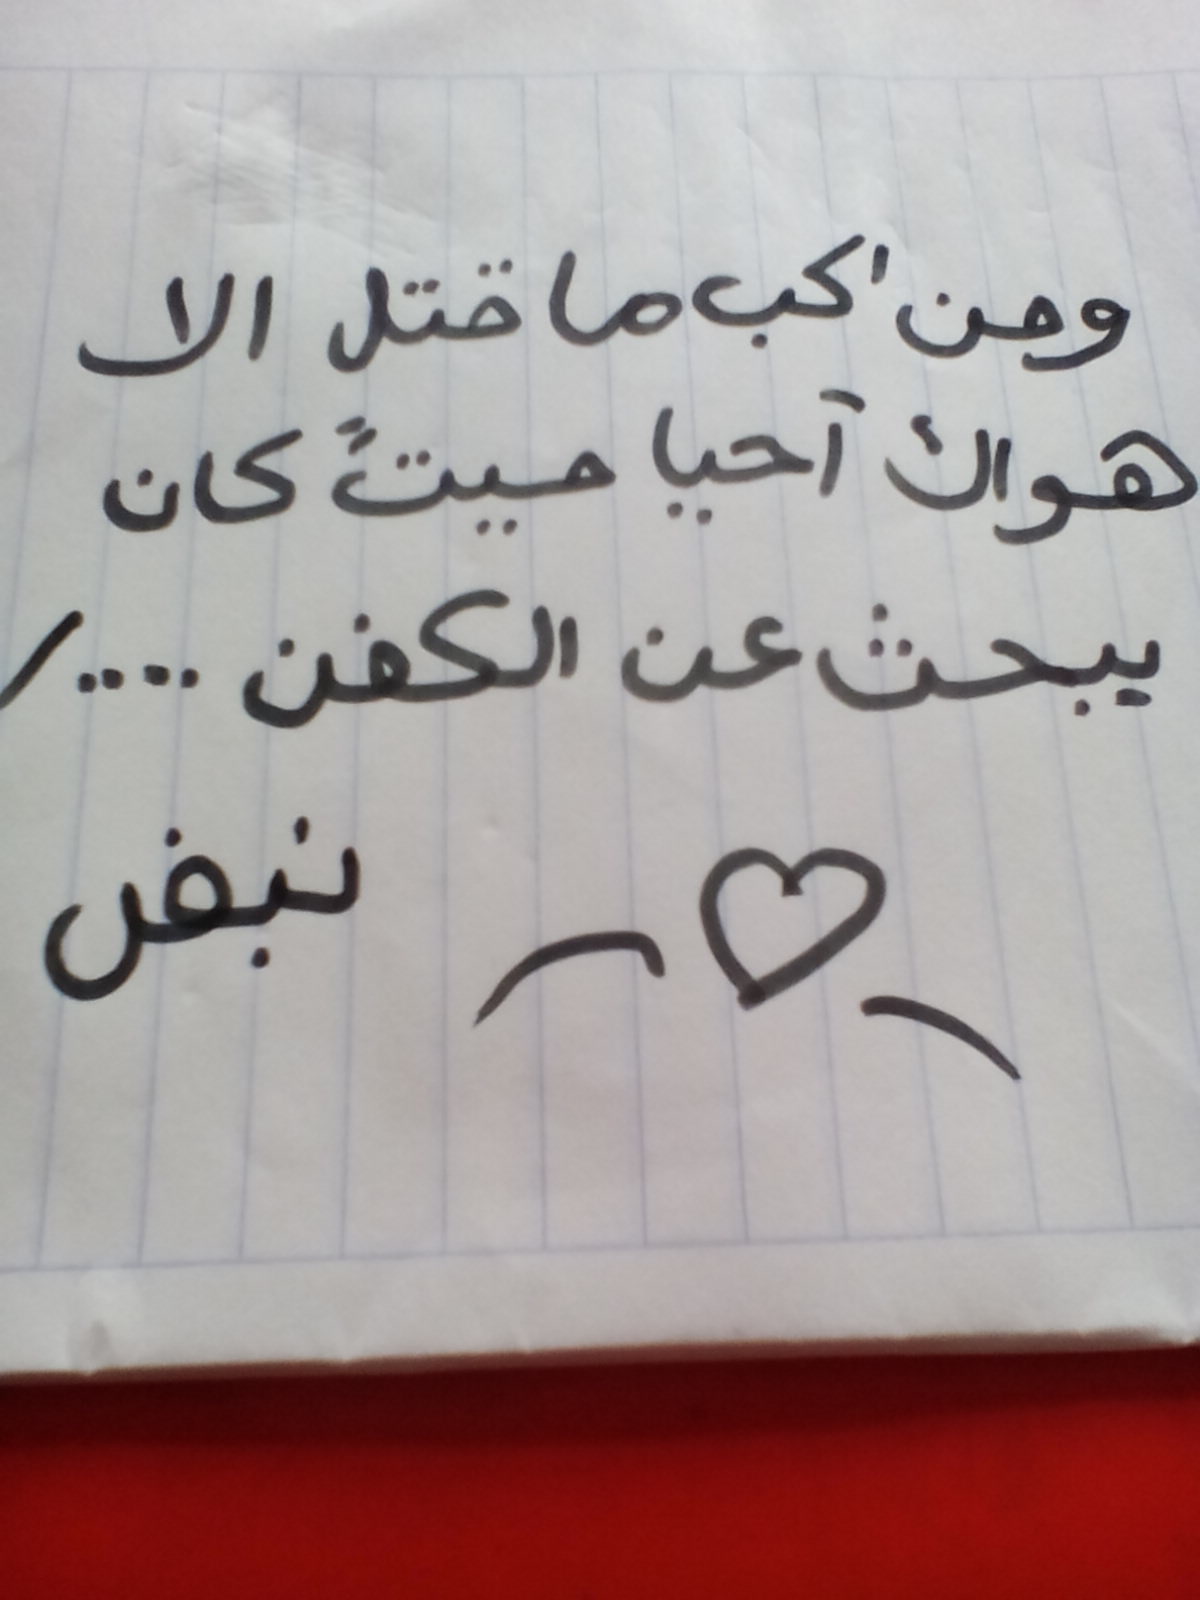 ومن اكب ما قتل الا
هواك آحيا ميتً كان
يبحث عن الكفن ..../
نبض